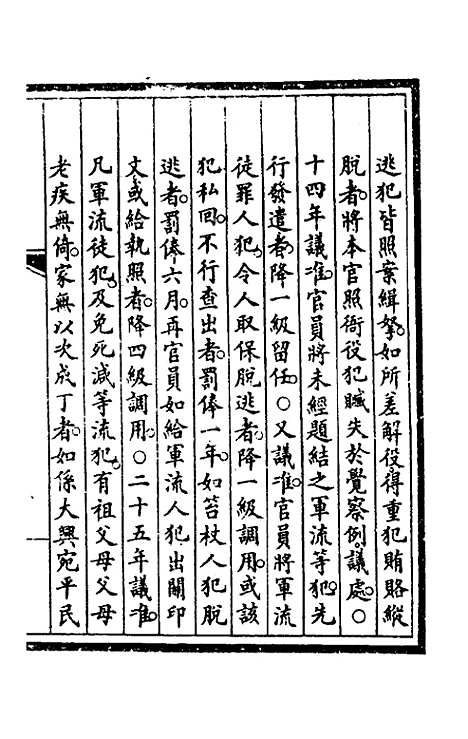 逃犯皆照案緝拏。如所差解役得重犯賄賂縱
脫者。將本官照衙役犯贓失於覺察例。議處。○
十四年議准。官員將未經題結之軍流等犯。先
行發遣者。降一級留任。○又議准。官員將軍流
徒罪人犯。令人取保脫逃者。降一級調用。或該
犯私回。不行查出者。罰俸一年。如笞杖人犯脫
逃者。罰俸六月。再官員如給軍流人犯出關印
文或給執照者。降四級調用。○二十五年議准。
凡軍流徒犯。及免死減等流犯。有祖父母父母
老疾無倚。家無以次成丁者。如係大興宛平民